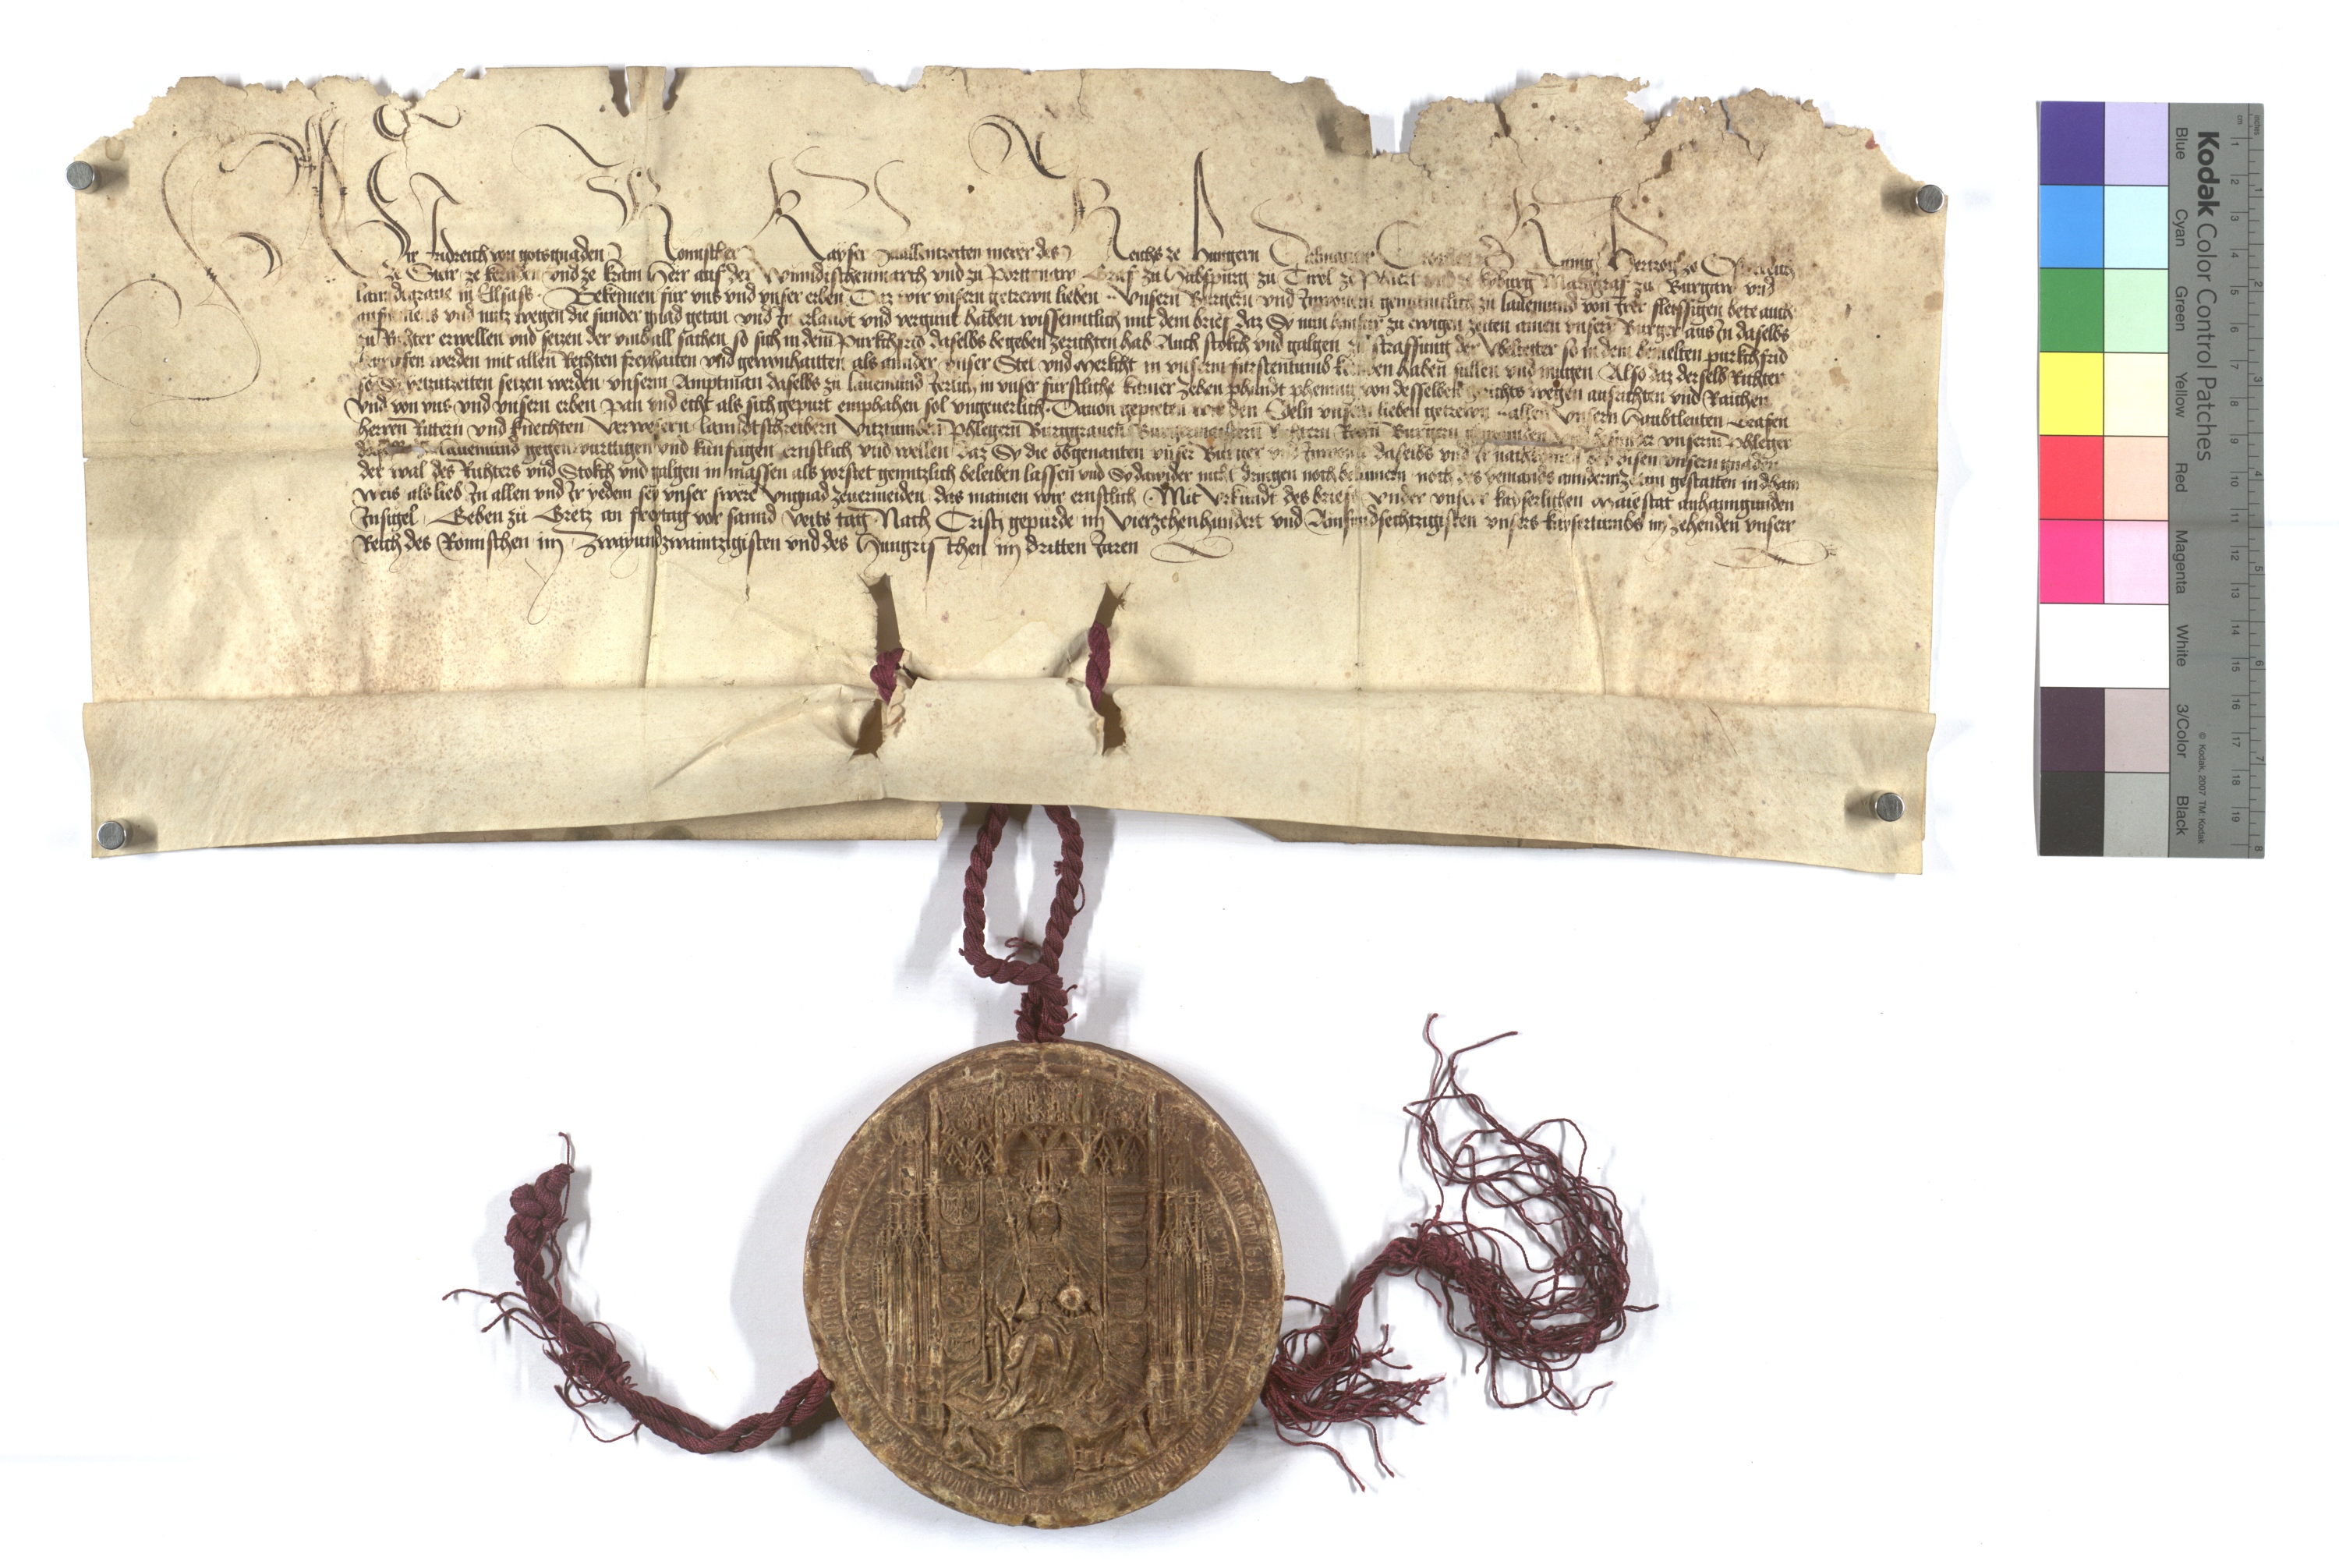 Wir Fridreich von gotsgnaden Romischer Kayser zuallentzeiten merer des Reichs ze Hungern Dalmacien Croacien Kunig Hertzog ze Osterreich
ze Steir ze kernden und ze krain Herr auf der Winndischenmarch und zu Porttenaw Graf zu Habspurg zu Tirol ze Phiert und ze kyburg Marggraf zu Burgaw und
lanndtgrave in Ellsass. Bekennen für uns und unser erben Daz wir unsern getrewn lieben .. unsern Burgern und Inwonern gemainclich zu lauemund von Irer fleissigen bete auch
aufnemens und nutz wegen die sunder gnad getan und In erlaubt und vergunt haben wissenntlich mit dem brief daz Sy nun hinfür zu ewigen zeiten ainen unsern Burger aus In daselbs
zu Richter erwellen und setzen der umb all sachen so sich in dem Purkchfrid daselbs begeben zerichten hab Auch stokch und galgen zu straffung der Ubeltetter so in dem bemelten purkchfrid
begriffen werden mit allen Rechten freyhaiten und gewonhaitten als annder unser Stet und Merkcht in unserm fürstentumb kernden haben sullen und mugen Also daz derselb Richter
so Sy yetzuzeiten setzen werden unserm Amptman daselbs zu lauemund Jerlich in unser fürstliche kamer Zehen phundt phening von desselben gerichts wegen ausrichten und Raichen
und von uns und unsern erben Pan und echt als sich gepurt emphahen sol ungeverlich. Davon gepieten wir den Edeln unsern lieben getrewn .. allen unsern Haubtleuten Grafen
Herren Rittern und knechten Verwesern lanndtschreibern Vitztumben Phlegern Burggraven Burgermaistern Richtern Reten Burgern gemainden und sunder unserm Phleger
daselbs zu lauemund gegenwurttigen und kunftigen ernstlich und wellen daz Sy die obgenanten unser Burger und Inwoner daselbs und ir nachkomen bey disen unsern gnaden
der wal des Richters und Stokch und galgen in massen als vorstet genntzlich beleiben lassen und Sy dawider nicht dringen noch bekumern noch des yemands anndermzetun gestatten in dhain
weis als lieb In allen und Ir yedem sey unser swere ungnad zevermeiden das mainen wir ernstlich Mit urkundt des briefs under unserr kayserlichen Maiestat anhanngunden
Insigel. Geben zu Gretz an freytag vor sannd Veits tag Nach Cristi gepurde im Vierzehenhundert und Ainsundsechtzigisten unsers kaysertumbs im zehenden unserr
Reich des Romischen im Zwayundzwaintzigisten und des Hungrischen im dritten Jaren
Kodak Color Control Patches
Blue Cyan Green Yellow Red Magenta White 3/Color Black
© Kodak, 2007 TM: Kodak
cm 1 2 3 4 5 6 7 8 9 10 11 12 13 14 15 16 17 18 19
inches 1 2 3 4 5 6 7 8